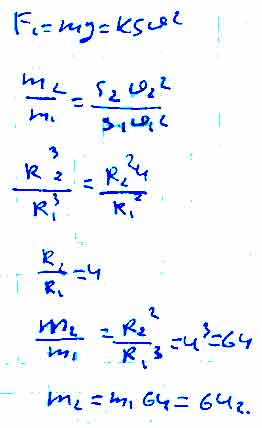 F₁ = mg = KSω²
m₂/m₁ = S₂ω₂²/S₁ω₁²
R₂³/R₁³ = R₂²4/R₁²
R₂/R₁ = 4
m₂/m₁ = R₂²/R₁³ = 4³ = 64
m₂ = m₁64 = 64г.